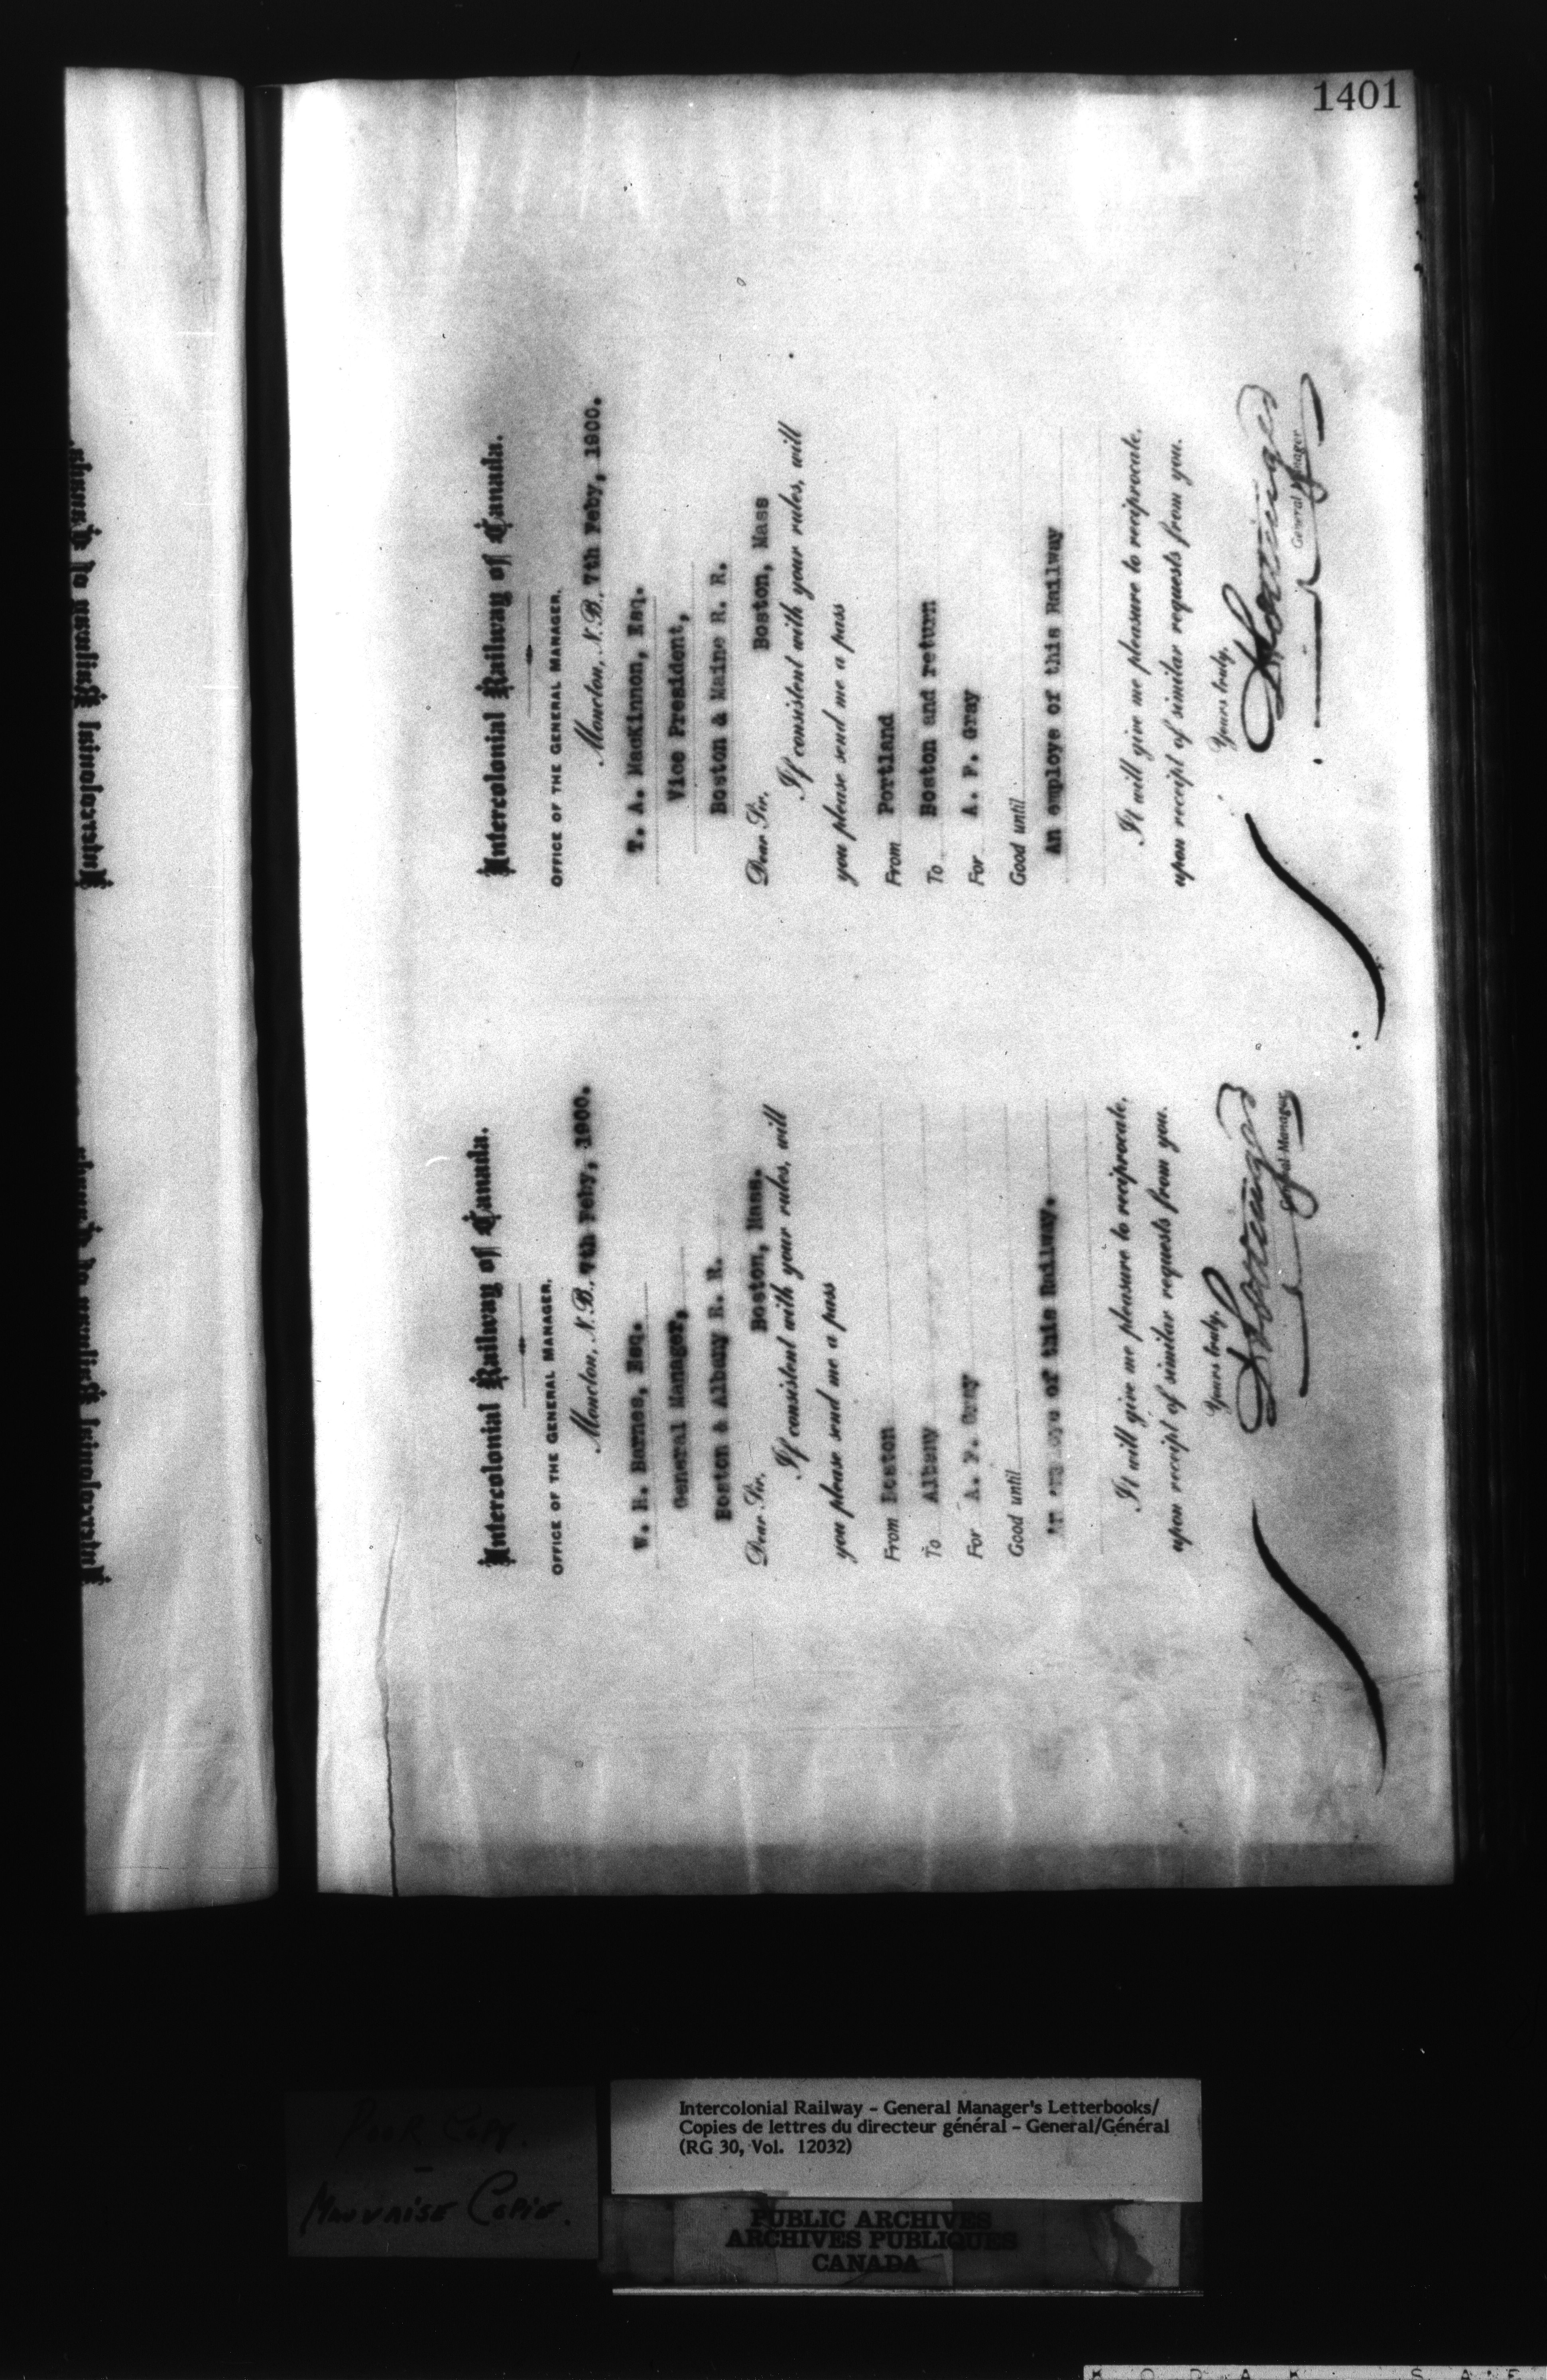 1401
Intercolonial Railway of Canada.
OFFICE OF THE GENERAL MANAGER.
Moncton, N.B. 7th Feby, 1900.
W. H. Barnes, Esq.
General Manager,
Boston & Albany R. R.
Boston, Mass.
Dear Sir,
If consistent with your rules, will
you please send me a pass
From Boston
To Albany
For A. P. Gray
Good until
An employe of this Railway.
It will give me pleasure to reciprocate,
upon receipt of similar requests from you.
Yours truly,
General Manager
Intercolonial Railway of Canada.
OFFICE OF THE GENERAL MANAGER.
Moncton, N.B. 7th Feby, 1900.
T. A. MacKinnon, Esq.
Vice President,
Boston & Maine R. R.
Boston, Mass
Dear Sir,
If consistent with your rules, will
you please send me a pass
From Portland
To Boston and return
For A. P. Gray
Good until
An employe of this Railway
It will give me pleasure to reciprocate,
upon receipt of similar requests from you.
Yours truly,
General Manager
Intercolonial Railway of Canada
Intercolonial Railway of Canada
POOR COPY.
MAUVAISE COPIE.
Intercolonial Railway - General Manager's Letterbooks/
Copies de lettres du directeur général - General/Général
(RG 30, Vol. 12032)
PUBLIC ARCHIVES
ARCHIVES PUBLIQUES
CANADA